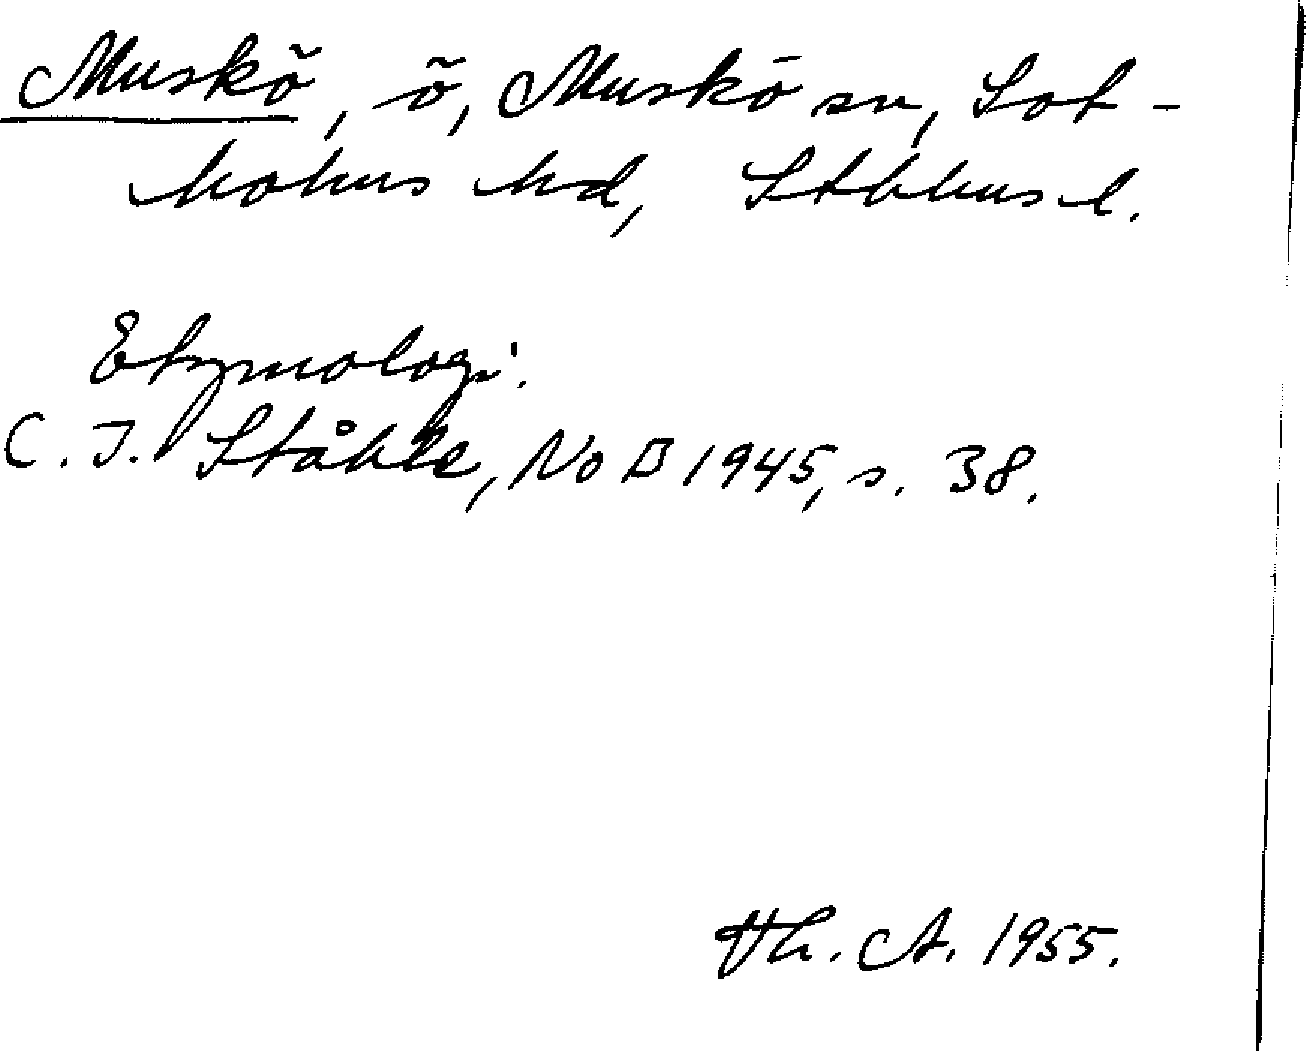 Muskö, ö, Muskö sn, Sot-
holms hd, Sthlms l.
Etymologi.
C. I. Ståhle, NoB 1945, s. 38.
Th. A. 1955.